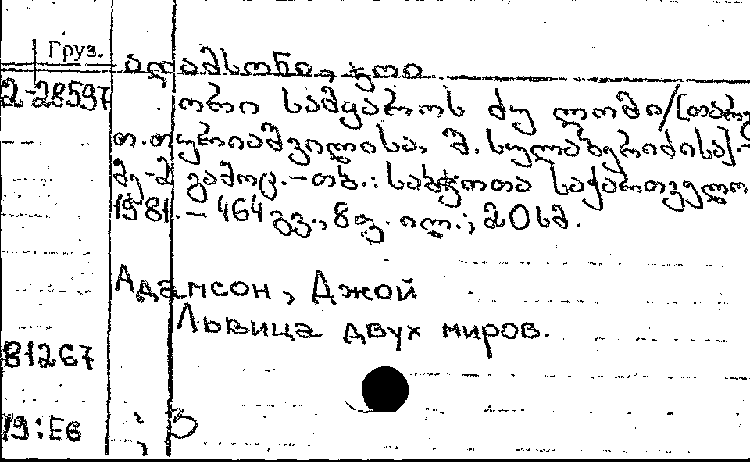 Груз.
ადამსონი, ჯოი
2-28597
ორი სამყაროს ძუ ლომი/[თარგ.
თ.თურიაშვილისა, მ.სულაბერიძისა].-
მე-2 გამოც.-თბ.: საბჭოთა საქართველო,
1981.-464გვ., 8ფ. ილ.; 20სმ.
Адамсон, Джой
Львица двух миров.
81267
79:Е6